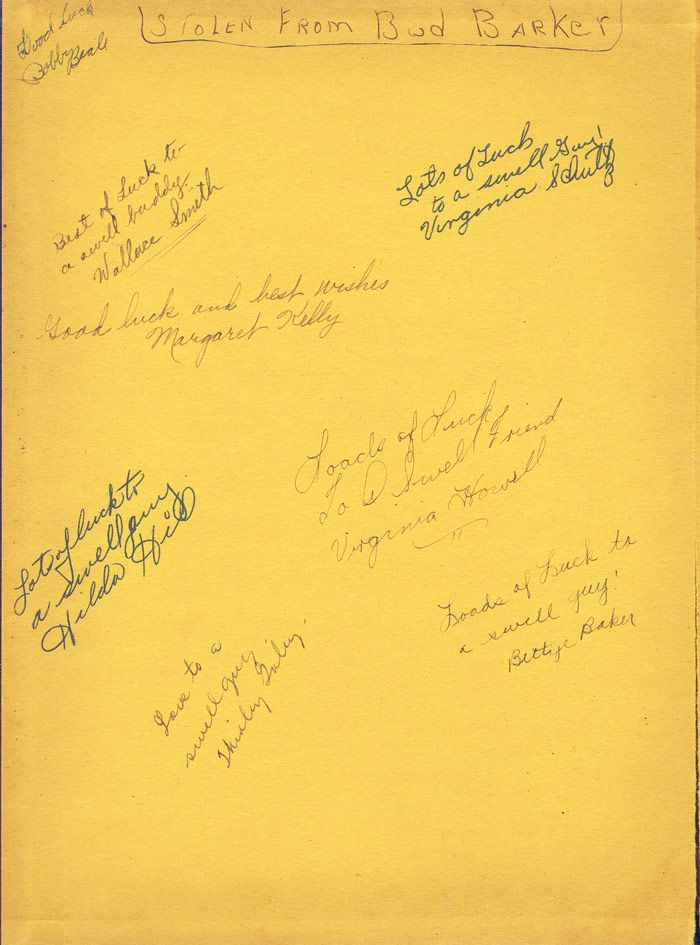 STOLEN FROM BUD BARKER
Good Luck
Bobby
Beale
Best of Luck to
a swell buddy.
Wallace Smith
Lots of Luck
to a swell Guy!
Virginia Schutz
Good luck and best wishes
Margaret Kelly
Loads of Luck
To A Swell Friend
Virginia Howell
Lots of luck to
a swell guy
Hilda Hil
Loads of Luck to
a swell guy!
Bettye Baker
Love to a
swell guy,
Shirley